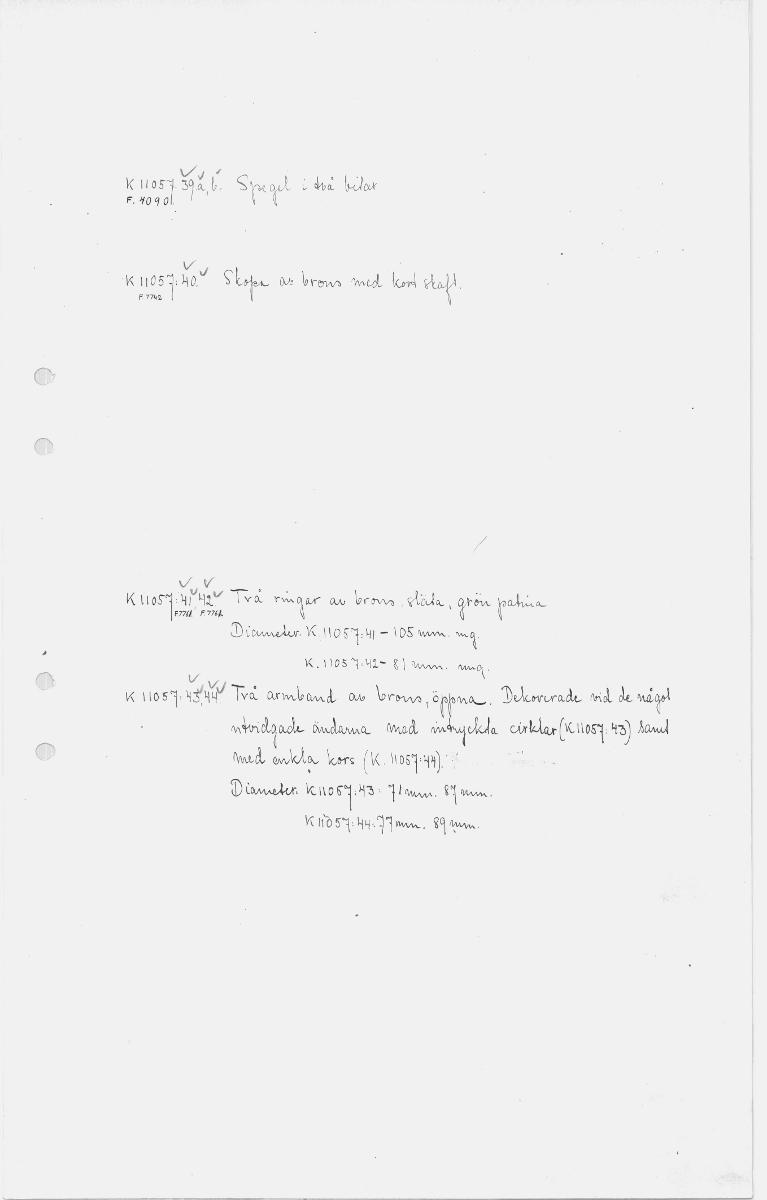 K 11057:39 a, b. Spegel i två bitar
F. 40901.
K 11057:40. Skopa av brons med kort skaft.
F. 7762
K 11057:41 42 Två ringar av brons, släta, grön patina
F.7761. F.7761.
Diameter. K 11057:41 – 105 mm.
K. 11057:42 – 81 mm.
K 11057:43, 44 Två armband av brons, öppna. Dekorerade vid de något
utvidgade ändarna med intryckta cirklar (K 11057:43) samt
med enkla kors (K. 11057:44).
Diameter. K 11057:43: 71 mm. 87 mm.
K 11057:44: 77 mm. 89 mm.